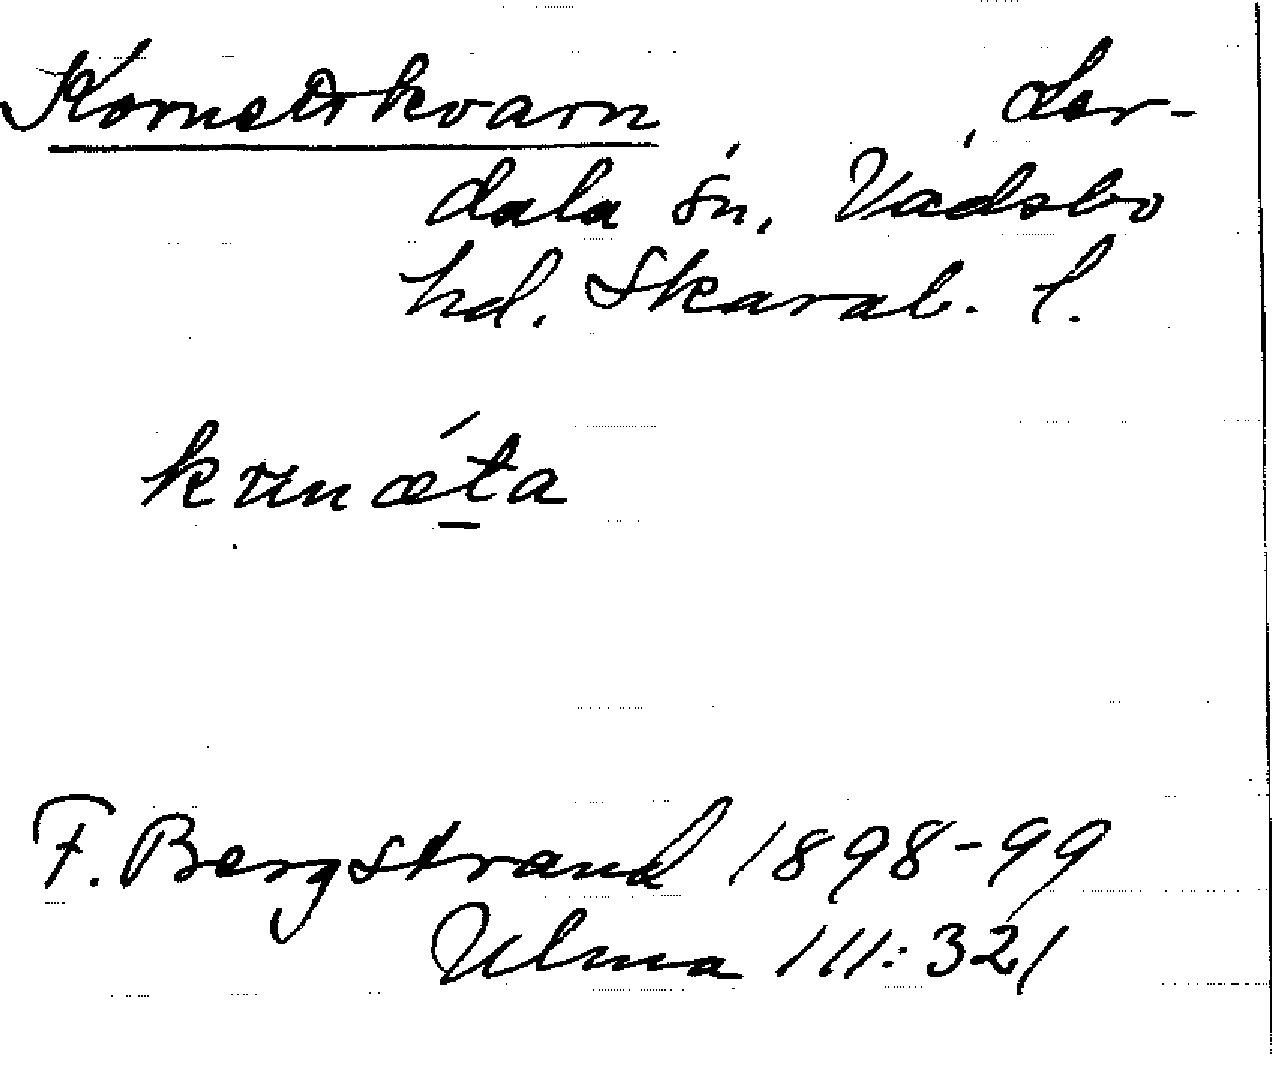 Kornettkvarn Ler-
dala sn. Vadsbo
hd. Skarab. l.
F. Bergstrand 1898-99
Ulma 111:321